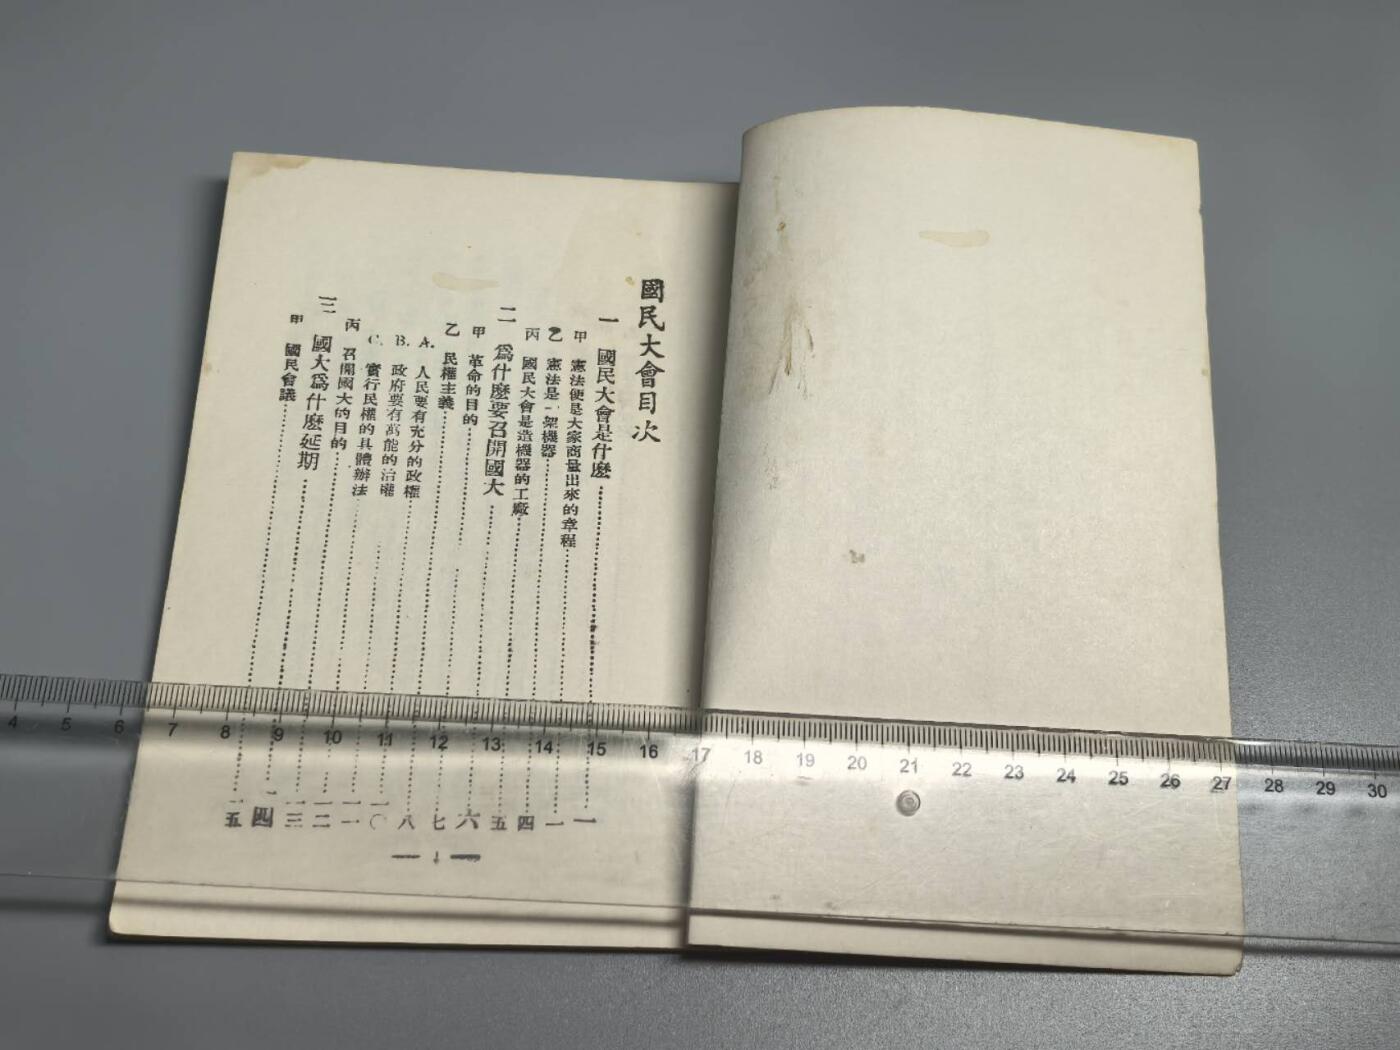 國民大會目次
一 國民大會是什麼……一
甲 憲法便是大家商量出來的章程……一
乙 憲法是一架機器……四
丙 國民大會是造機器的工廠……五
二 爲什麼要召開國大……六
甲 革命的目的……七
乙 民權主義……八
A. 人民要有充分的政權……一〇
B. 政府要有萬能的治權……一一
C. 實行民權的具體辦法……一二
丙 召開國大的目的……一三
三 國大爲什麼延期……一四
甲 國民會議……一五
— 1 —
4 5 6 7 8 9 10 11 12 13 14 15 16 17 18 19 20 21 22 23 24 25 26 27 28 29 30